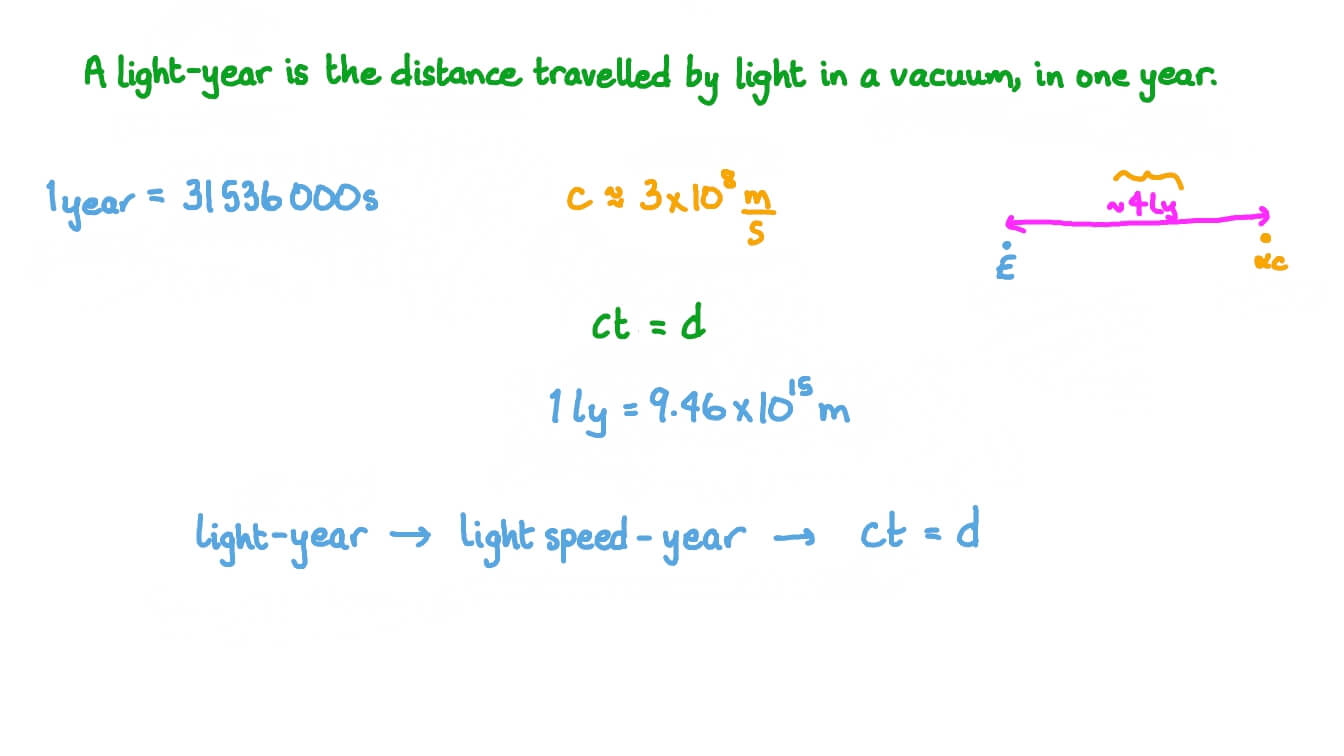 A light-year is the distance travelled by light in a vacuum, in one year.
1 year = 31 536 000 s
c ≈ 3 × 10⁸ m/s
~4 ly
E
αc
ct = d
1 ly = 9.46 × 10¹⁵ m
light-year → light speed - year → ct = d